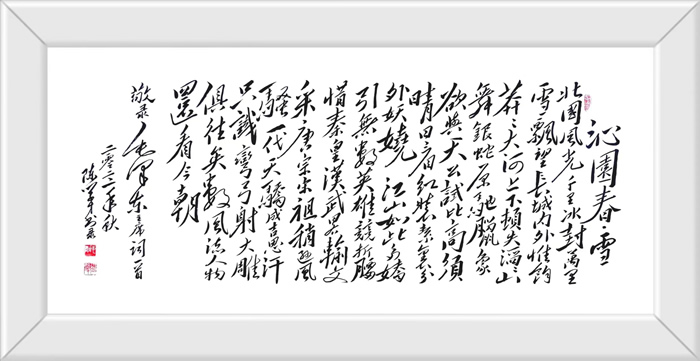 沁園春雪
北國風光千里冰封萬里
雪飄望長城內外惟餘
莽莽大河上下頓失滔滔山
舞銀蛇原馳臘象
欲與天公試比高須
晴日看紅裝素裹分
外妖嬈江山如此多嬌
引無數英雄競折腰
惜秦皇漢武略輸文
采唐宗宋祖稍遜風
騷一代天驕成吉思汗
只識彎弓射大雕
俱往矣數風流人物
還看今朝
敬录毛澤东主席詞一首
二零二一年秋